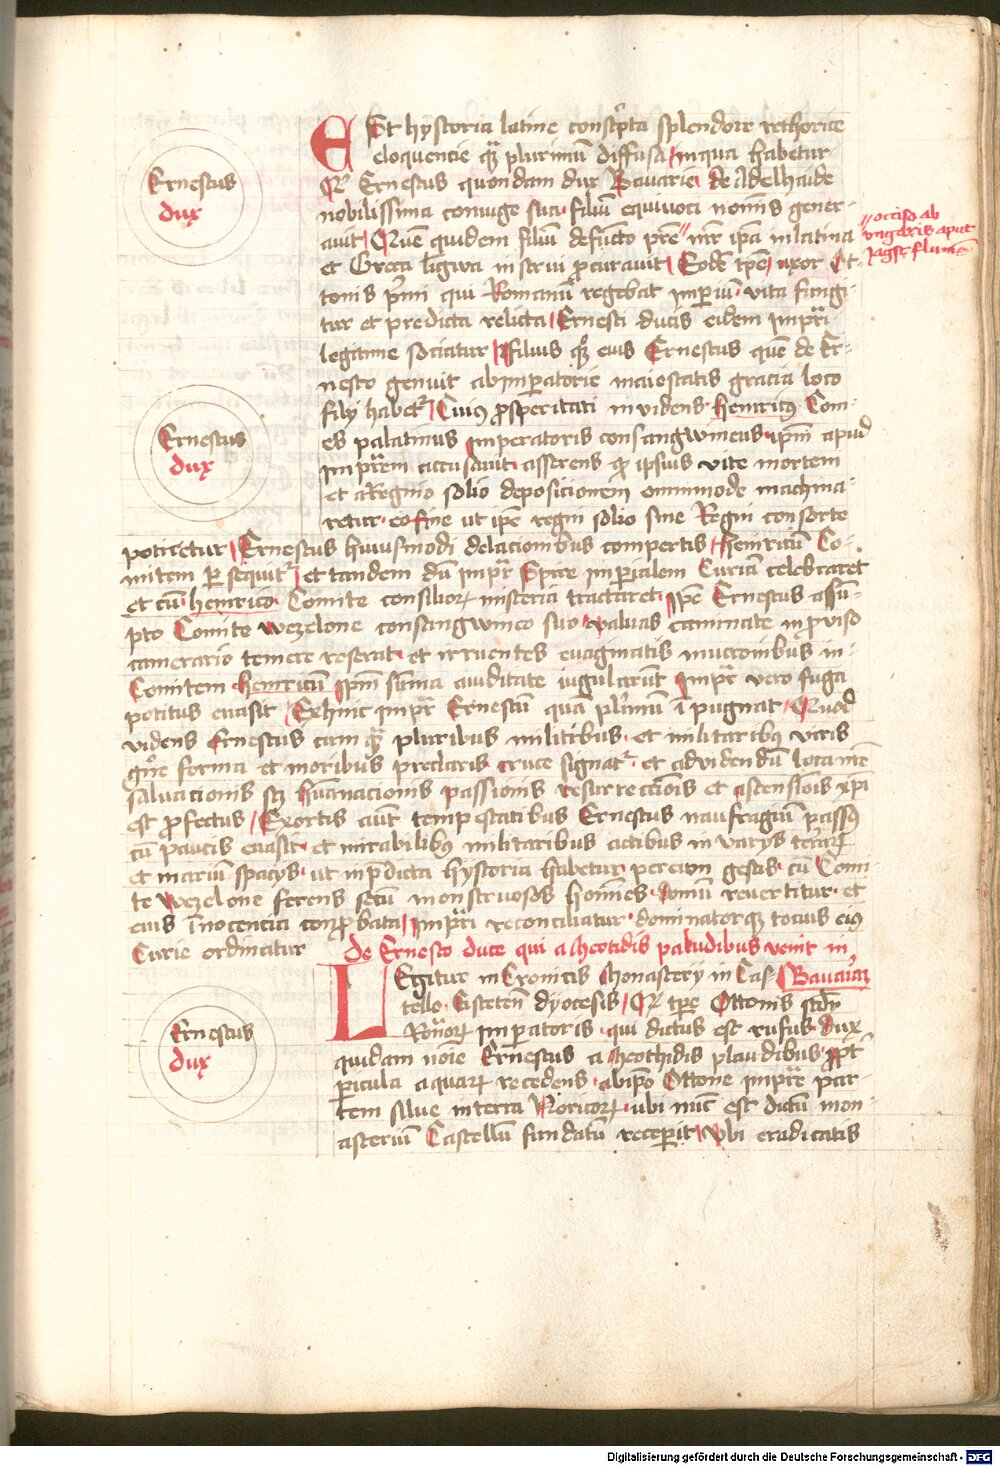 Ernestus
dux
Est hystoria latine conscripta splendore rethorice
eloquencie quam plurimum diffusa in qua habetur
Quod Ernestus quondam dux Bavarie de Adelhaide
nobilissima coniuge sua filium equivoci nominis gener-
avit Quem quidem filium defuncto patre mater ipsa in latina
et Greca lingwa instrui procuravit Eodem tempore uxor Ot-
tonis primi qui Romanum regebat imperium vita fungi-
tur et predicta relicta Ernesti ducis eidem Imperatori
legitime sociatur Filius quoque eius Ernestus quem de Er-
nesto genuit ab imperatorie maiestatis gracia loco
filii habetur Cuius prosperitati invidens heinricus Com-
es palatinus imperatoris consangwineus ipsum apud
Imperatorem accusavit asserens quod ipsius vite mortem
et a Regnio solio deposicionem omnimode machina-
retur eo fine ut ipse regni solio sine Regni consorte
// occiso ab
ungaris aput
Jagst flumen
Ernestus
dux
potiretur Ernestus huiusmodi delacionibus compertis heinricum Co-
mitem persequitur et tandem dum imperator Spire imperialem Curiam celebraret
et cum heinrico Comite consiliorum misteria tractaret ipse Ernestus assum-
pto Comite wezelone consangwineo suo valvas caminate inproviso
camerario temere reserat et irruentes evaginatis mucronibus in
Comitem heinricum ipsum summa aviditate iugularunt Imperator vero fuga
potitus evasit Exhinc imperator Ernestum quam plurimum inpugnat Quod
videns Ernestus cum quam pluribus militibus et militaribus viris
forma et moribus preclaris cruce signatur et ad videndum loca
salvacionis scilicet humanacionis passionis resurrectionis et ascensionis christi
est profectus Exortis autem tempestatibus Ernestus naufragium passus
cum paucis evasit et mirabilibus militaribus actibus in variis terrarum
et marium spaciis ut in predicta hystoria habetur per eum gestis cum Comi-
te wezelone ferens secum monstruosos homines domum revertitur et
eius innocencia conprobata imperatori reconciliatur dominatorque tocius eius
Curie ordinatur
De Ernesto duce qui a theotidis paludibus venit in
Bavariam
Legitur in Cronicis Monastery in Cas-
tello Eistetensis dyocesis Quod tempore Ottonis secundi
Romanorum imperatoris qui dictus est rufus dux
quidam nomine Ernestus a theothidis plaudibus propter
pericula aquarum recedens ab ipso Ottone imperatore par-
tem silve in terra Noricorum ubi nunc est dictum mon-
asterium Castellum fundatum recepit Ubi eradicatis
Ernestus
dux
Digitalisierung gefördert durch die Deutsche Forschungsgemeinschaft - DFG